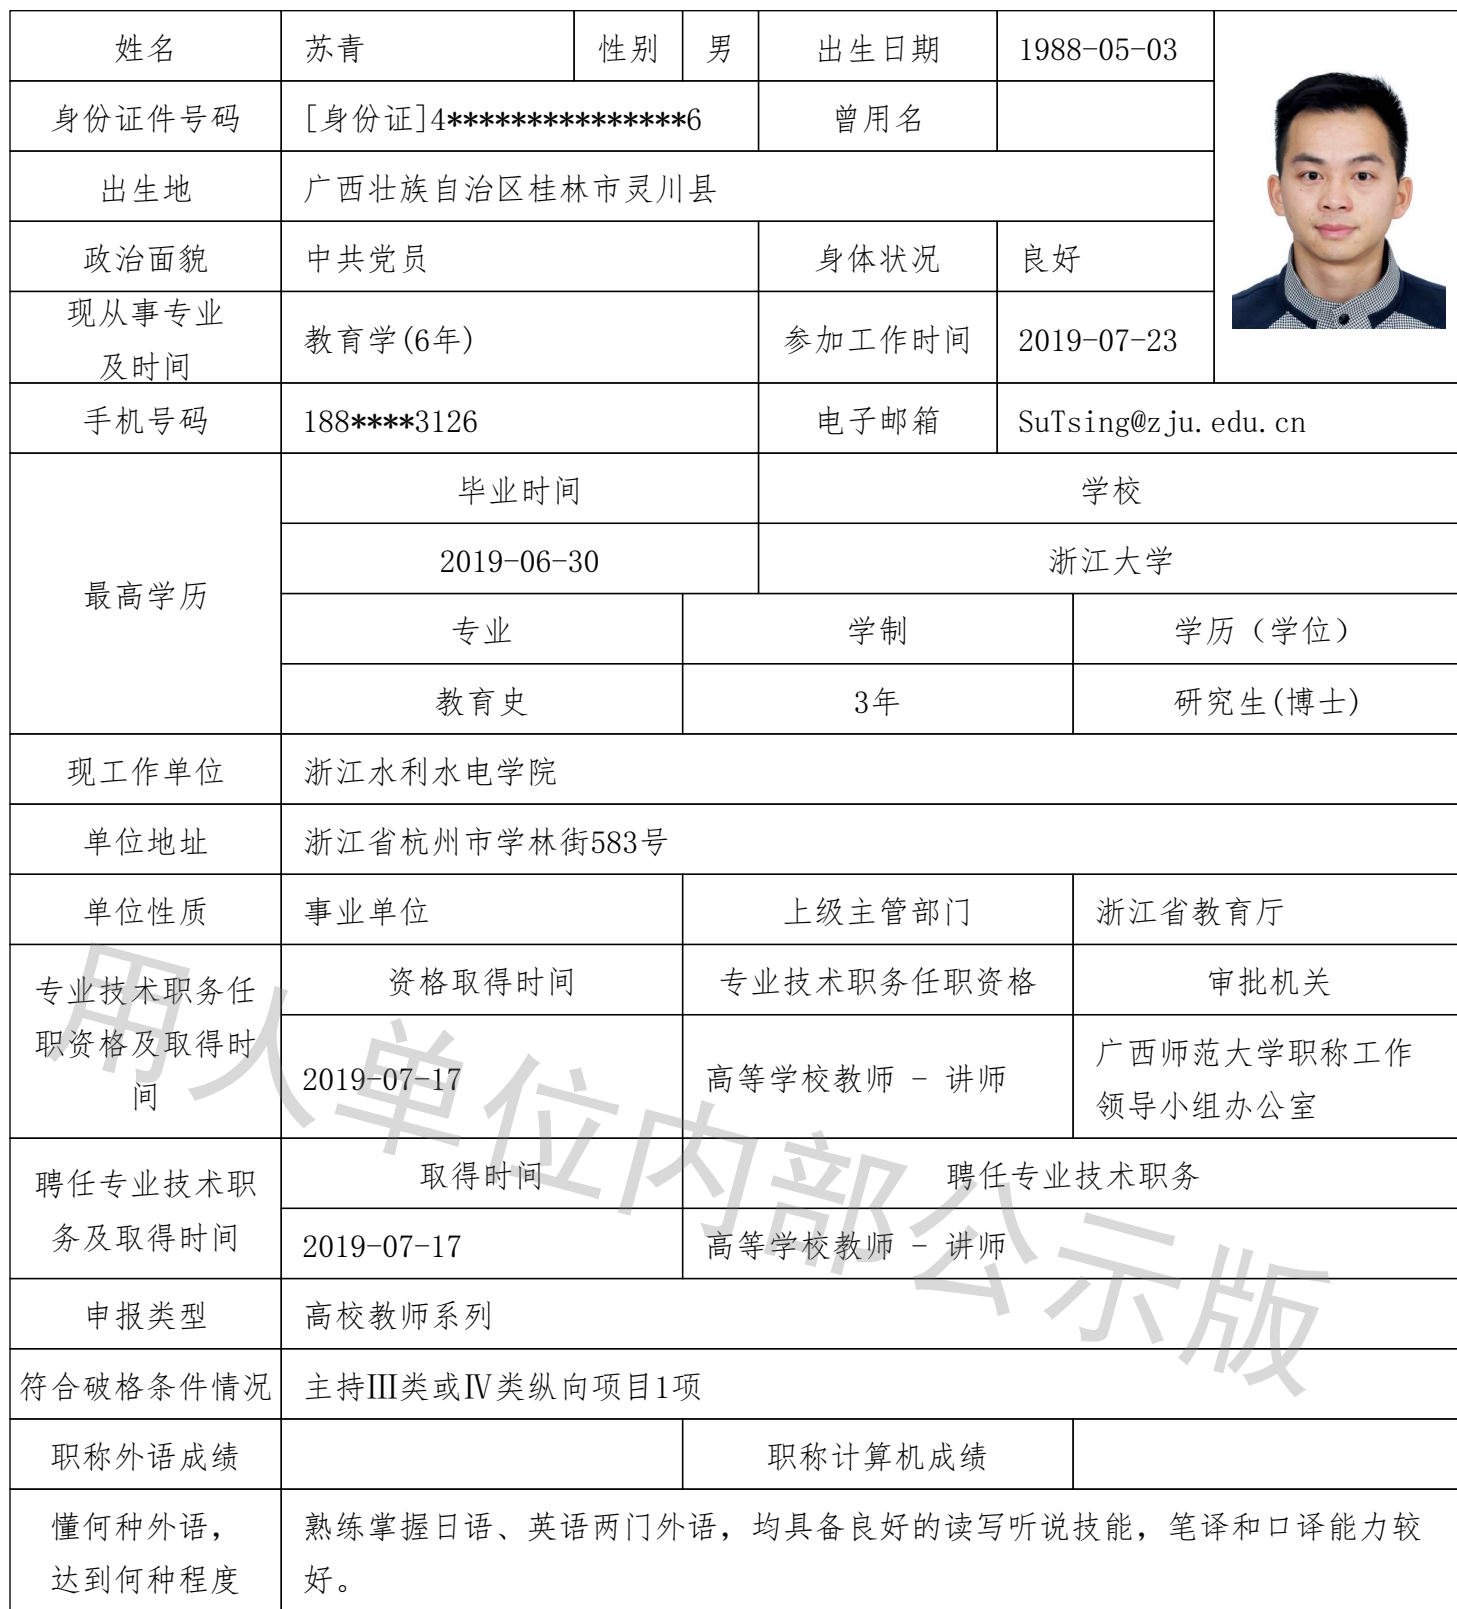 姓名 苏青 性别 男 出生日期 1988-05-03
身份证件号码 [身份证]4***************6 曾用名
出生地 广西壮族自治区桂林市灵川县
政治面貌 中共党员 身体状况 良好
现从事专业
及时间 教育学(6年) 参加工作时间 2019-07-23
手机号码 188****3126 电子邮箱 SuTsing@zju.edu.cn
最高学历
毕业时间 学校
2019-06-30 浙江大学
专业 学制 学历（学位）
教育史 3年 研究生(博士)
现工作单位 浙江水利水电学院
单位地址 浙江省杭州市学林街583号
单位性质 事业单位 上级主管部门 浙江省教育厅
专业技术职务任
职资格及取得时
间
资格取得时间 专业技术职务任职资格 审批机关
2019-07-17 高等学校教师 - 讲师
广西师范大学职称工作
领导小组办公室
聘任专业技术职
务及取得时间
取得时间 聘任专业技术职务
2019-07-17 高等学校教师 - 讲师
申报类型 高校教师系列
符合破格条件情况 主持Ⅲ类或Ⅳ类纵向项目1项
职称外语成绩 职称计算机成绩
懂何种外语，
达到何种程度
熟练掌握日语、英语两门外语，均具备良好的读写听说技能，笔译和口译能力较
好。
用人单位内部公示版